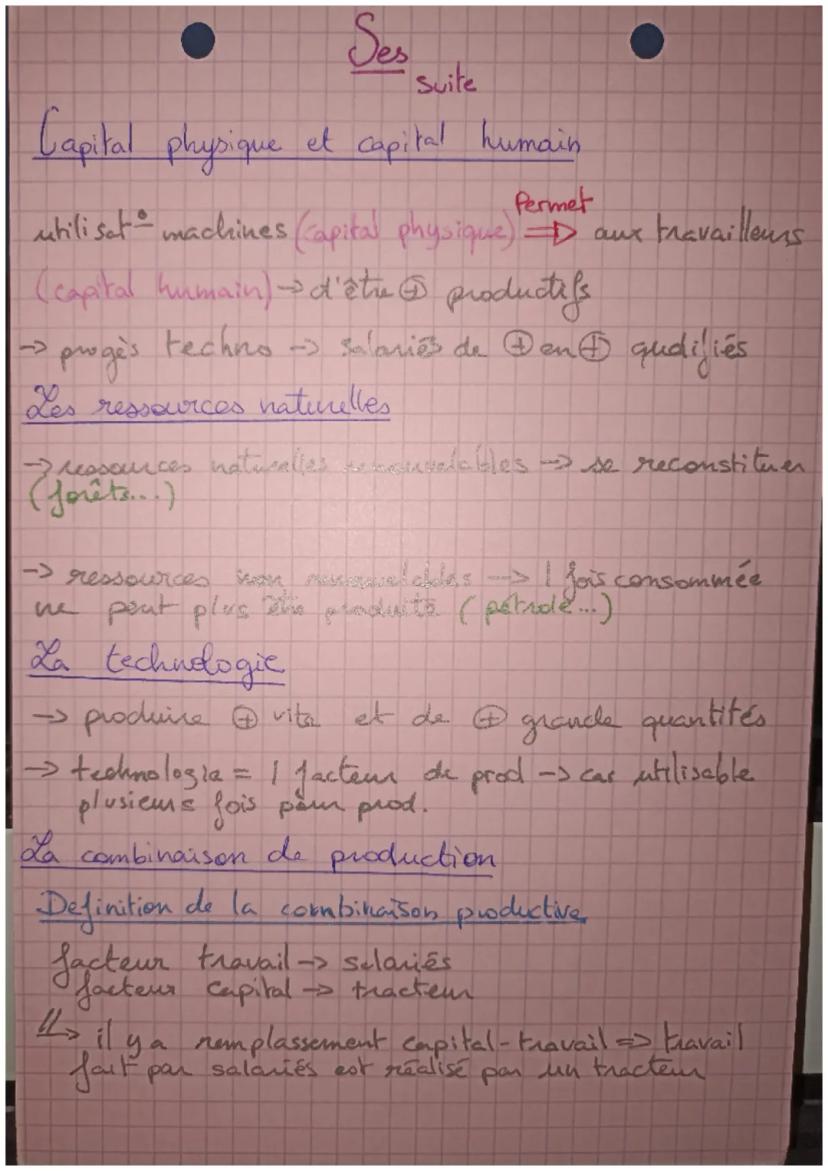 Ses
suite
Capital physique et capital humain
Permet
utilisat° machines (capital physique) => aux travailleurs
(capital humain) -> d'être ⊕ productifs
-> progès techno -> salariés de ⊕ en ⊕ qualifiés
Les ressources naturelles
-> ressources naturelles renouvelables -> se reconstituer
(forêts...)
-> ressources non renouvelables -> 1 fois consommée
ne peut plus être produite (pétrole...)
La technologie
-> produire ⊕ vite et de ⊕ grande quantités
-> technologie = 1 facteur de prod -> car utilisable
plusieurs fois pour prod.
La combinaison de production
Definition de la combinaison productive
facteur travail -> salariés
facteur capital -> tracteur
-> il y a remplassement capital-travail => travail
fait par salariés est réalisé par un tracteur